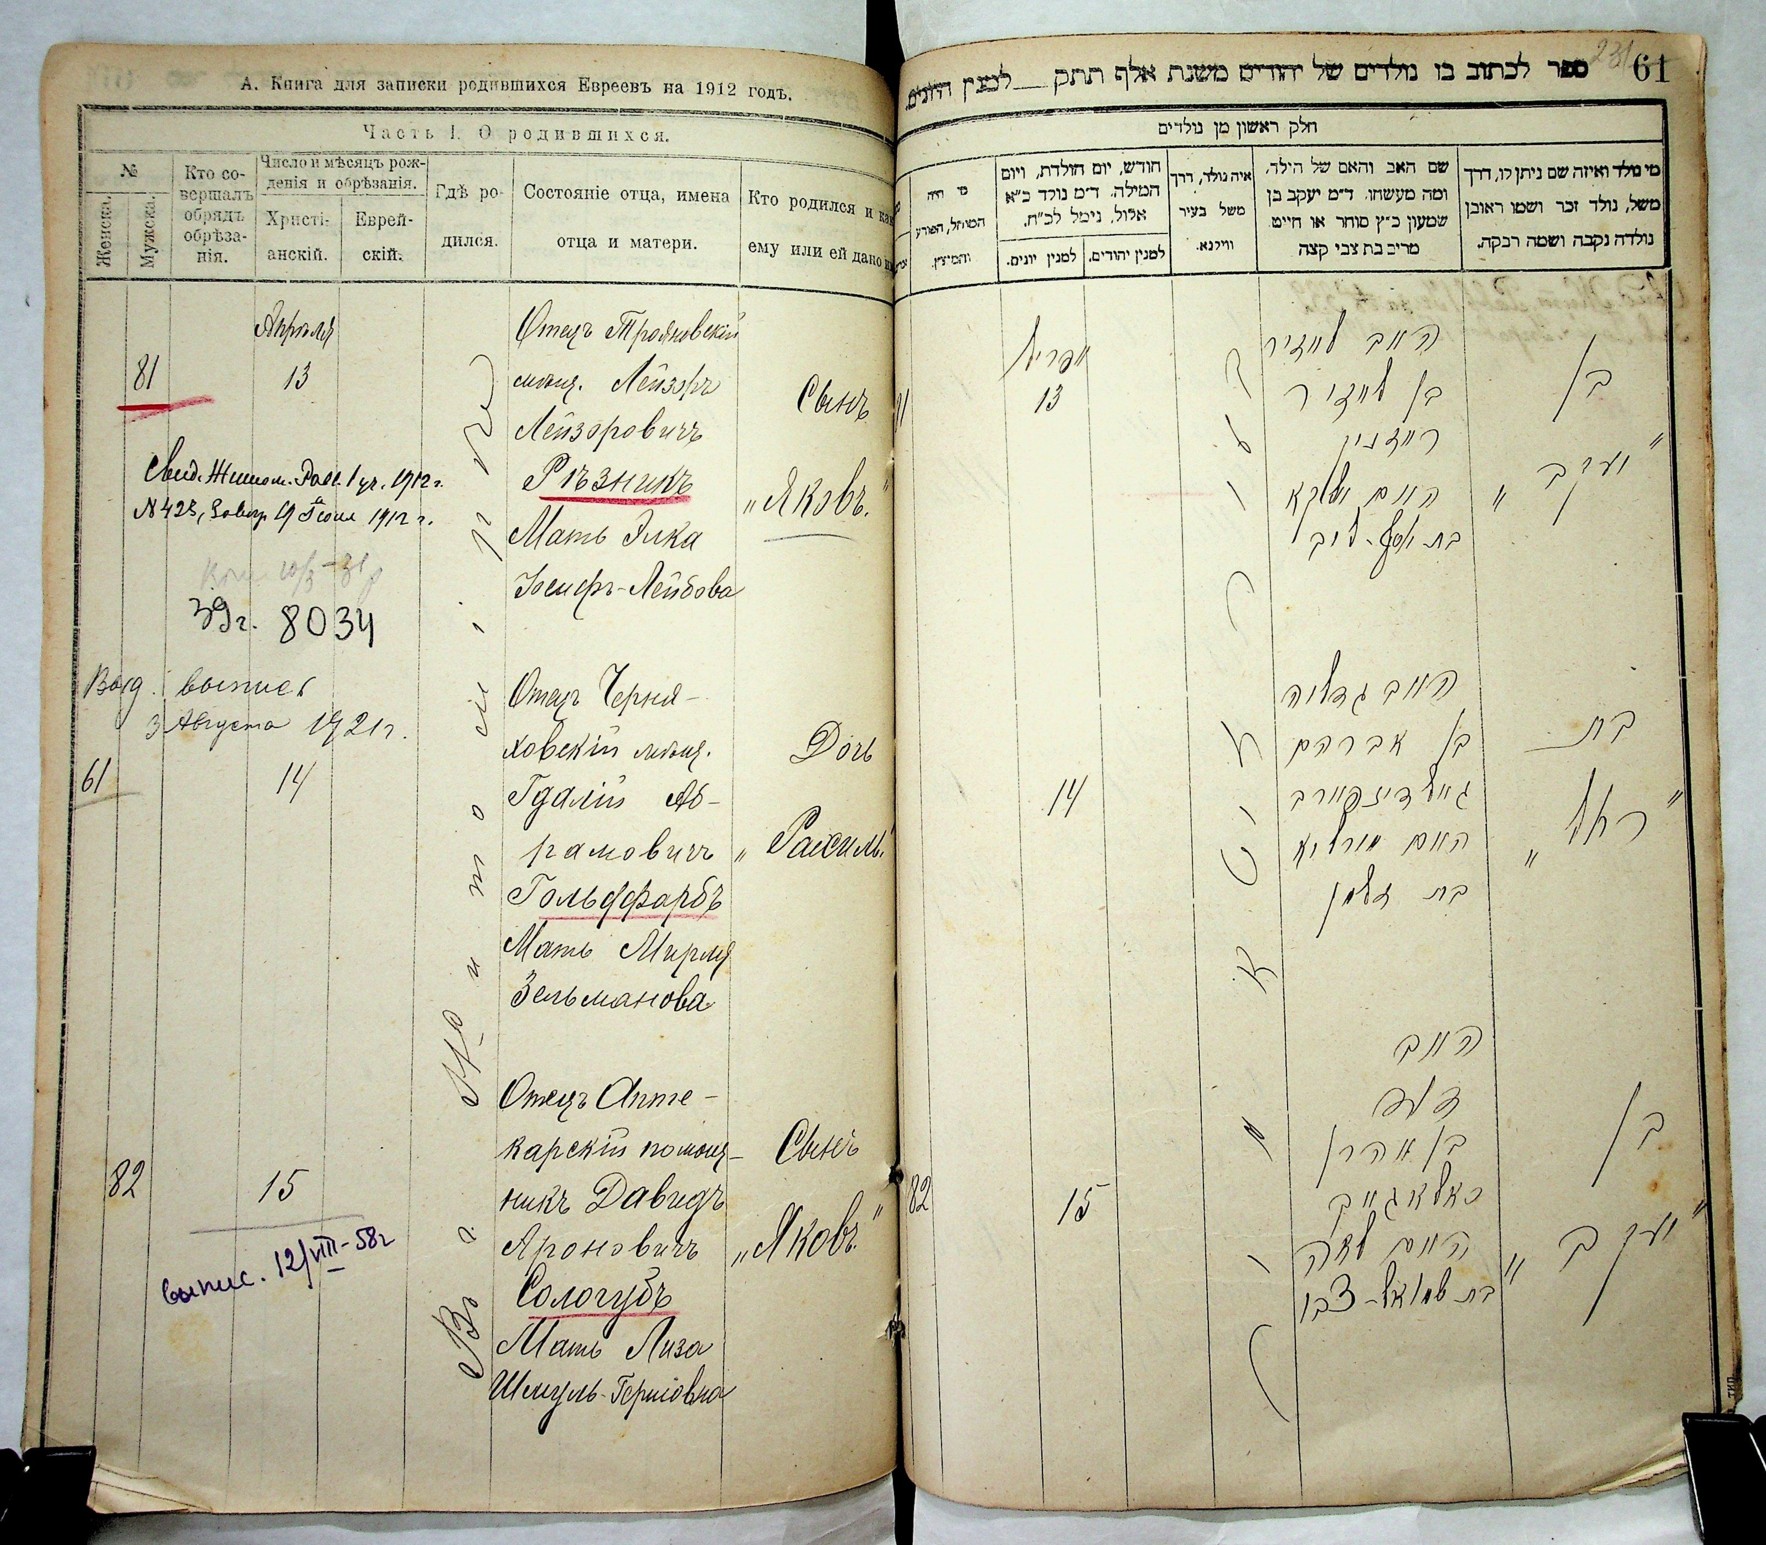 А. Книга для записки родившихся Евреевъ на 1912 годъ.
Часть I. О родившихся.
№
Женска.
Мужска.
Кто со-
вершалъ
обрядъ
обрѣза-
нія.
Число и мѣсяцъ рож-
денія и обрѣзанія.
Христі-
анскій.
Еврей-
скій.
Гдѣ ро-
дился.
Состояніе отца, имена
отца и матери.
Кто родился и как
ему или ей дано
Апрѣля
81
13
Отецъ Трояновскій
мѣщ. Лейзоръ
Лейзоровичъ
Рѣзникъ
Мать Элка
Іосифъ-Лейбова
Сынъ
„Яковъ."
Свид. Житом. 1 уч. 1912 г.
№ 423, 19 Іюля 1912 г.
39г. 8034
Выд. выпись
3 Августа 1921г.
61
14
Отецъ Черня-
ховскій мѣщ.
Гдалій Аб-
рамовичъ
Гольдфарбъ
Мать Мирля
Зельманова
Дочь
„Рахиль."
82
15
Отецъ Апте-
карскій помощ-
никъ Давидъ
Ароновичъ
Сологубъ
Мать Лиза
Шмуль-Гершовна
Сынъ
„Яковъ."
выпис. 12/VIII-58г
Въ г. Житомирѣ
231
61
ספר לכתוב בו נולדים של יהודים משנת אלף תתק __ למנין היונים.
חלק ראשון מן נולדים
מי נולד ואיזה שם ניתן לו, דרך
משל, נולד זכר ושמו ראובן
נולדה נקבה ושמה רבקה.
שם האב והאם של הילד,
ומה מעשהו. ד״מ יעקב בן
שמעון כ״ץ סוחר או חייט
מרים בת צבי קצה
איה נולד, דרך
משל בעיר
ווילנא.
חודש, יום הולדת, ויום
המילה. ד״מ נולד כ״א
אלול, נימל לכ״ח.
למנין יהודים.
למנין יונים.
מי היה
המוהל, הפורע
והמוצץ.
אפריל
13
האב לייזיר
בן לייזיר
רייזניק
האם עלקא
בת יוסף-לייב
בן
„יעקב"
14
האב גדליה
בן אברהם
גאלדפארב
האם מירליא
בת זלמן
בת
„רחל"
82
15
האב
דוד
בן אהרן
סאלאגוב
האם ליזה
בת שמואל-צבי
בן
„יעקב"